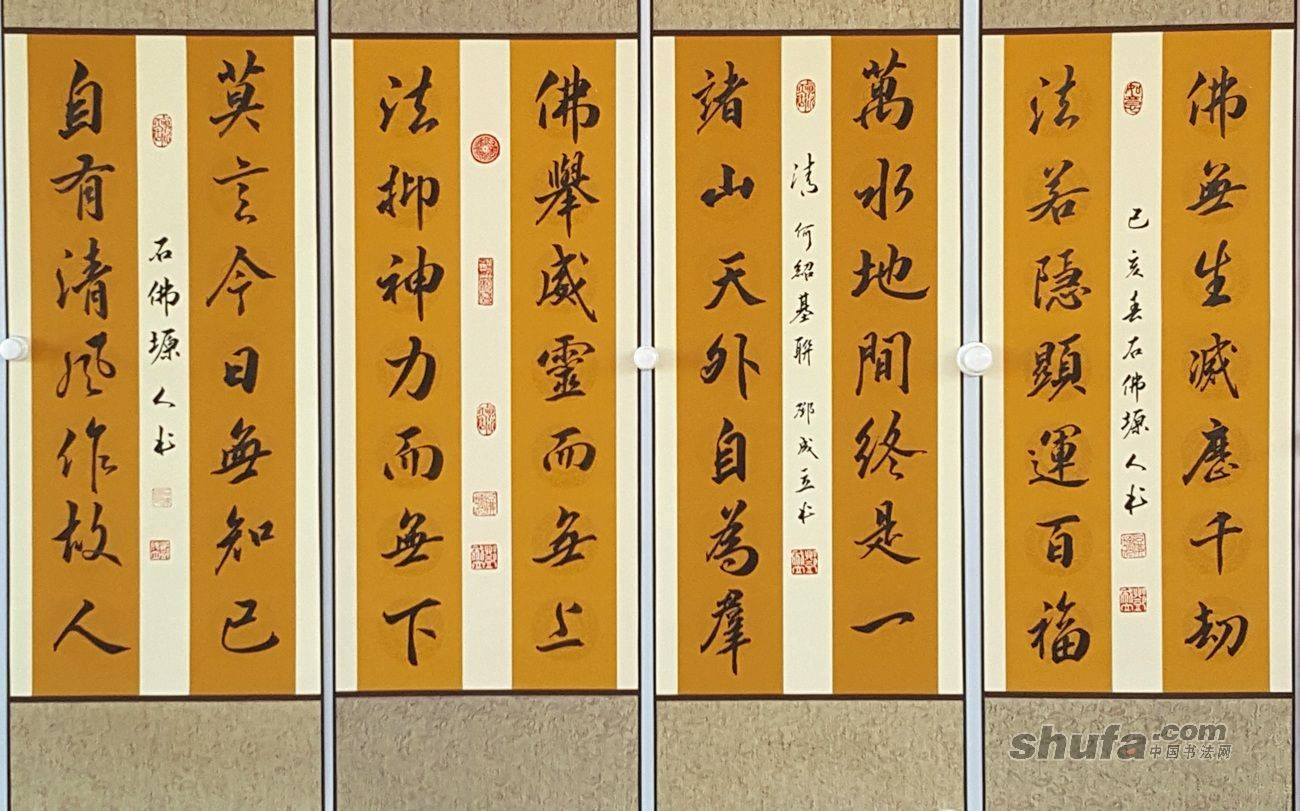 佛無生滅歷千劫
己亥春石佛塬人书
法若隱顯運百福
萬水地間終是一
清何紹基聯 鄧成立书
諸山天外自為羣
佛舉威靈而無上
法抑神力而無下
莫言今日無知已
石佛塬人书
自有清風作故人
shufa.com
中国书法网